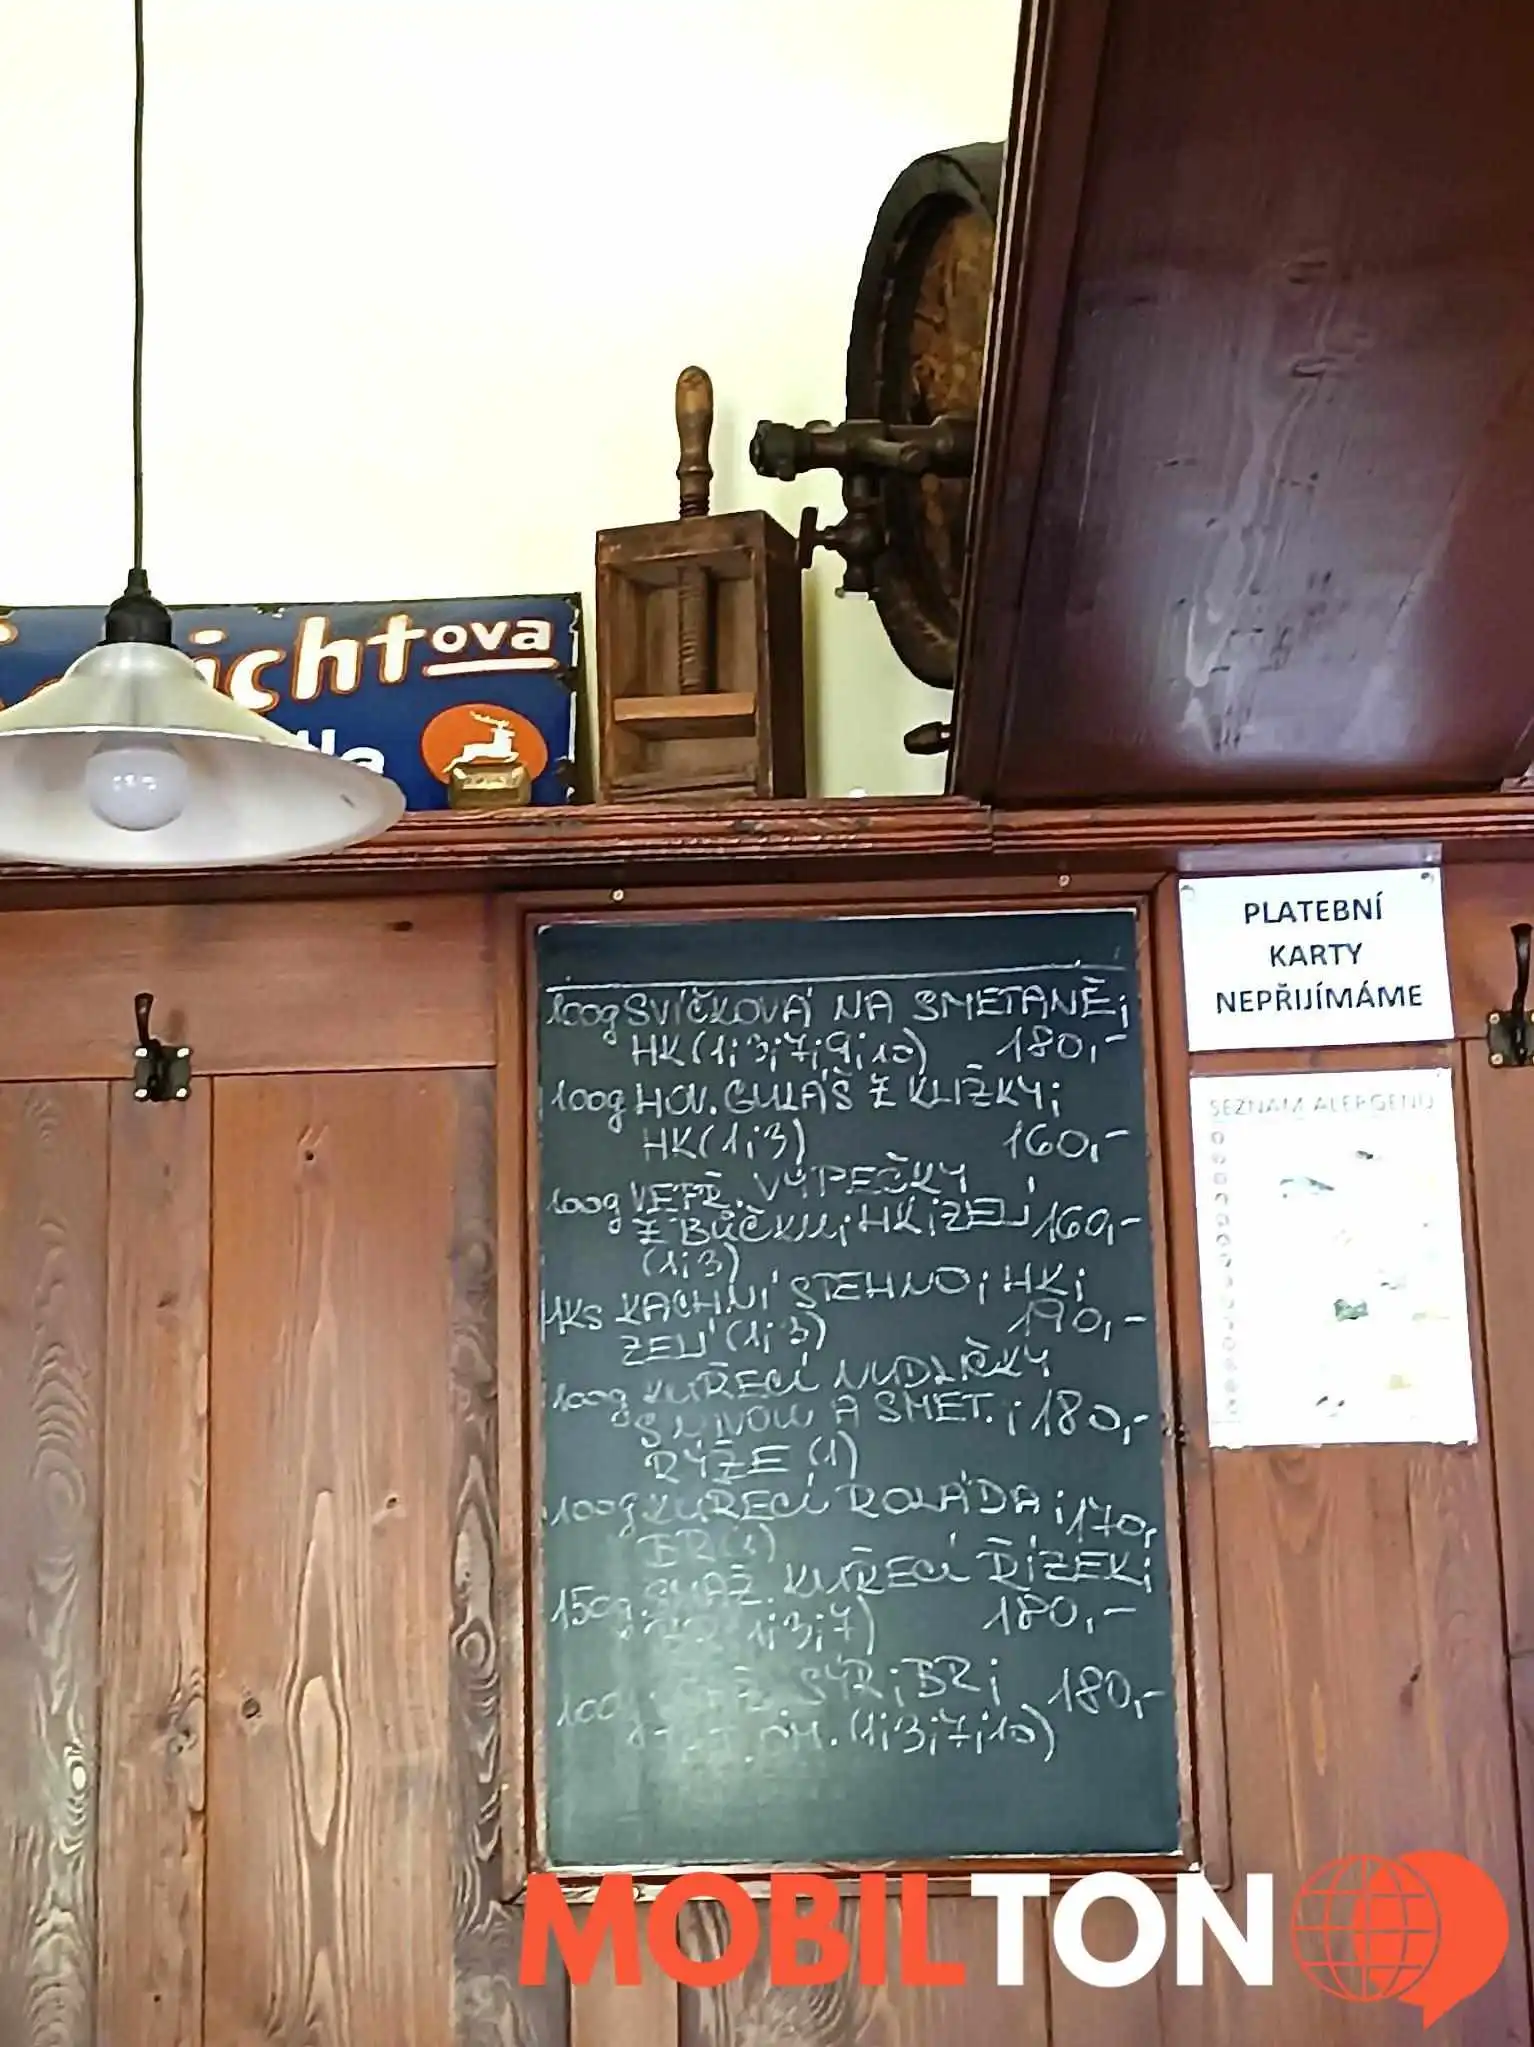 ichtova
100g SVÍČKOVÁ NA SMETANĚ;
HK (1;3;7;9;10) 180,-
100g HOV. GULÁŠ Z KLIŽKY;
HK (1;3) 160,-
100g VEPŘ. VÝPEČKY
Z BŮČKU; HK; ZELÍ 160,-
(1;3)
1KS KACHNÍ STEHNO; HK;
ZELÍ (1;3) 190,-
100g KUŘECÍ NUDLIČKY
S NIVOU A SMET.; 180,-
RÝŽE (1)
100g KUŘECÍ ROLÁDA; 170,
BR (1)
150g SMAŽ. KUŘECÍ ŘÍZEK;
1;3;7) 180,-
100 SÝR; BR; 180,-
OM. (1;3;7;10)
PLATEBNÍ
KARTY
NEPŘIJÍMÁME
SEZNAM ALERGENŮ
MOBILTON